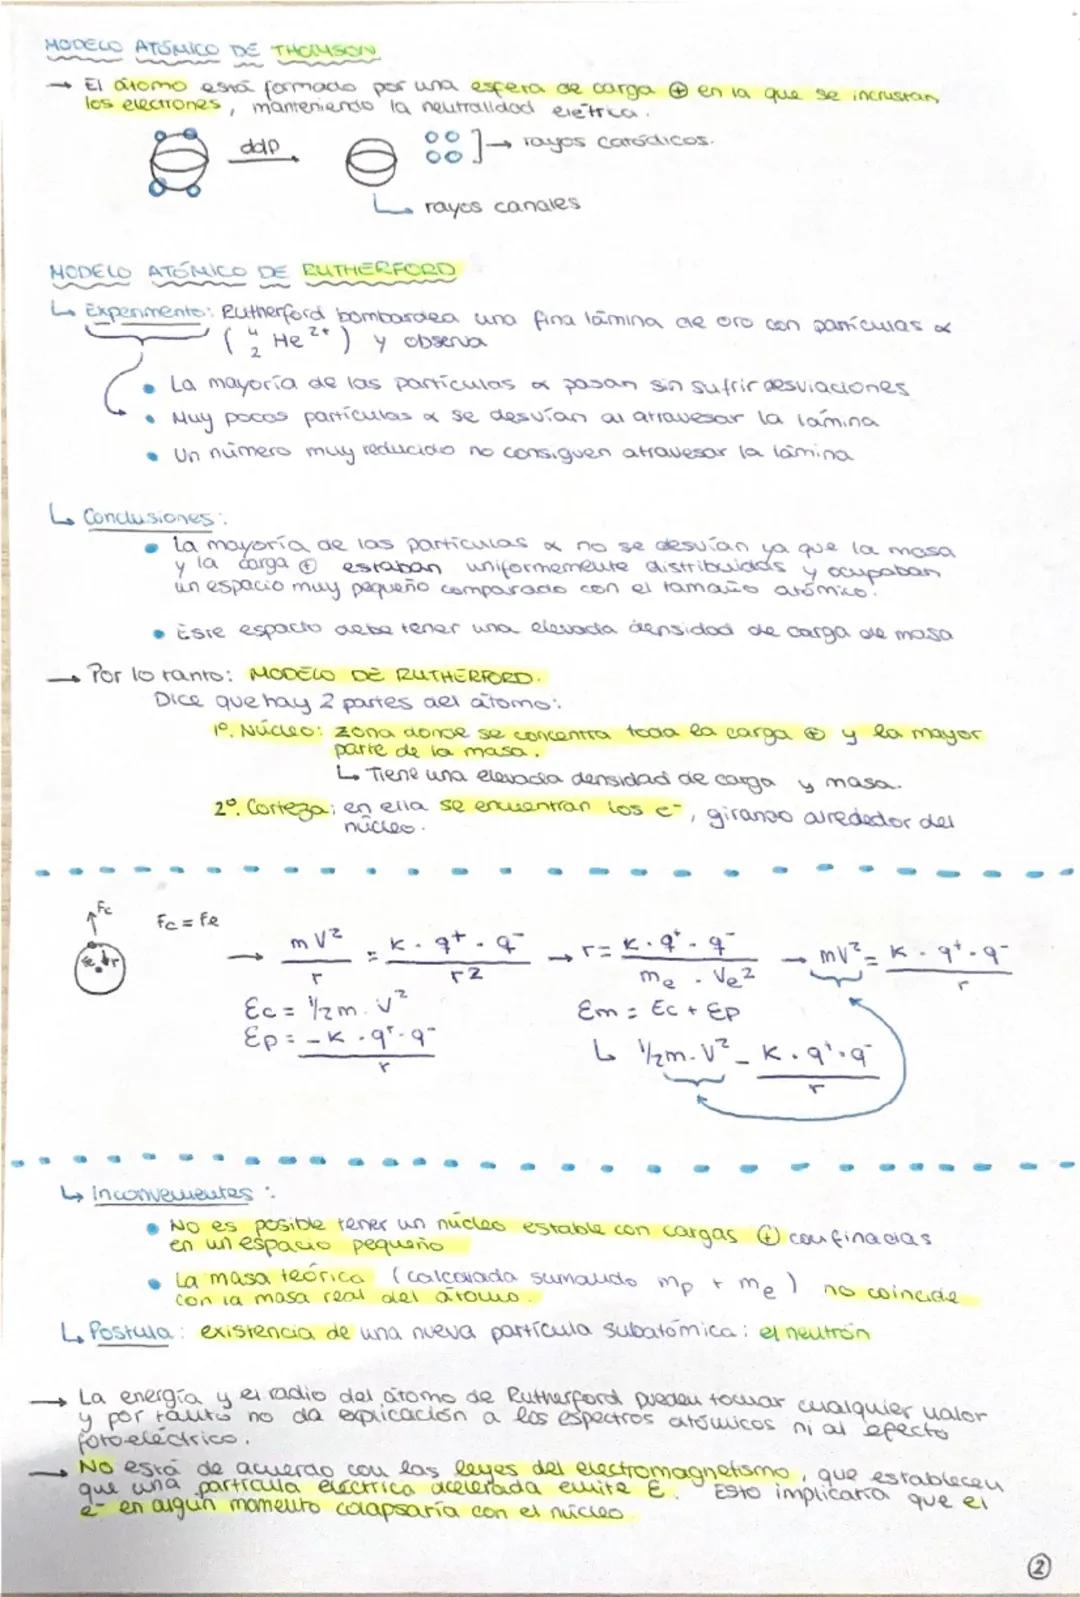 MODELO ATÓMICO DE THOMSON
→ El átomo está formado por una esfera de carga ⊕ en la que se incrustan
los electrones, manteniendo la neutralidad elétrica.
ddp
→ rayos catódicos.
rayos canales
MODELO ATÓMICO DE RUTHERFORD
↳ Experimento: Rutherford bombardea una fina lámina de oro con partículas α
(⁴₂He²⁺) y observa
• La mayoría de las partículas α pasan sin sufrir desviaciones
• Muy pocas partículas α se desvían al atravesar la lámina
• Un número muy reducido no consiguen atravesar la lámina
↳ Conclusiones:
• La mayoría de las partículas α no se desvían ya que la masa
y la carga ⊕ estaban uniformemente distribuidas y ocupaban
un espacio muy pequeño comparado con el tamaño atómico.
• Este espacio debe tener una elevada densidad de carga de masa
→ Por lo tanto: MODELO DE RUTHERFORD.
Dice que hay 2 partes del átomo:
1º. Núcleo: zona donde se concentra toda la carga ⊕ y la mayor
parte de la masa.
↳ Tiene una elevada densidad de carga y masa.
2º. Corteza: en ella se encuentran los e⁻, girando alrededor del
núcleo.
Fc
Fe r
Fc = Fe
→ mV²/r = K·q⁺·q⁻/r² → r = K·q⁺·q⁻/me·Ve² → mV² = K·q⁺·q⁻/r
Ec = 1/2 m·V²
Em = Ec + Ep
Ep = -K·q⁺·q⁻/r
↳ 1/2 m·V² - K·q⁺·q⁻/r
↳ Inconvenientes:
• No es posible tener un núcleo estable con cargas ⊕ confinadas
en un espacio pequeño
• La masa teórica (calculada sumando mp + me) no coincide
con la masa real del átomo.
↳ Postula: existencia de una nueva partícula subatómica: el neutrón
→ La energía y el radio del átomo de Rutherford pueden tomar cualquier valor
y por tanto no da explicación a los espectros atómicos ni al efecto
fotoeléctrico.
→ No está de acuerdo con las leyes del electromagnetismo, que establecen
que una partícula eléctrica acelerada emite E. Esto implicaría que el
e⁻ en algún momento colapsaría con el núcleo
②